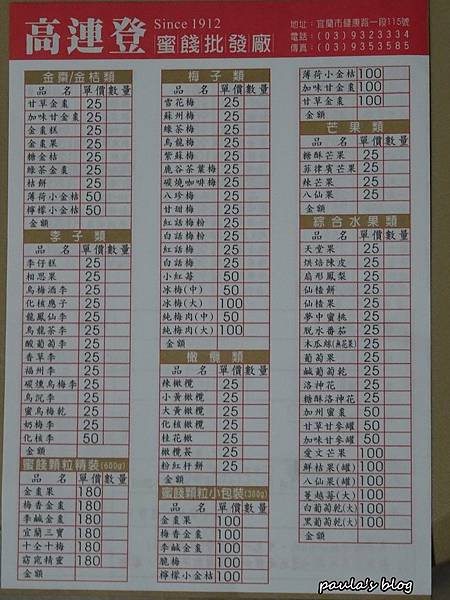 高連登 Since 1912
蜜餞批發廠
地址：宜蘭市健康路一段115號
電話：(03)9323334
傳真：(03)9353585
金棗/金桔類
品 名 單價 數量
甘草金棗 25
加味甘金棗 25
金棗糕 25
金棗果 25
糖金桔 25
綠茶金棗 25
桔餅 25
薄荷小金桔 50
檸檬小金桔 50
金額
李子類
品 名 單價 數量
李仔糕 25
相思果 25
烏梅酒李 25
化核應子 25
龍鳳仙李 25
烏龍茶李 25
酸葡萄李 25
香草李 25
福州李 25
碳燻烏梅李 25
烏沉李 25
蜜烏梅乾 25
奶梅李 25
化核李 50
金額
蜜餞顆粒精裝(600g)
品 名 單價 數量
金棗果 180
梅香金棗 180
李鹹金棗 180
宜蘭三寶 180
十全十梅 180
窈窕精靈 180
金額
梅子類
品 名 單價 數量
雪花梅 25
蘇州梅 25
綠茶梅 25
烏龍梅 25
紫蘇梅 25
鹿谷茶葉梅 25
碳燒咖啡梅 25
八珍梅 25
甘甜梅 25
紅話梅粉 25
白話梅粉 25
紅話梅 25
白話梅 25
小紅莓 50
冰梅(中) 50
冰梅(大) 100
純梅肉(中) 50
純梅肉(大) 100
金額
橄欖類
品 名 單價 數量
辣橄欖 25
小黃橄欖 25
大黃橄欖 25
化核橄欖 25
桂花橄 25
橄欖荖 25
粉紅杆餅 25
金額
蜜餞顆粒小包裝(300g)
品 名 單價 數量
金棗果 100
梅香金棗 100
李鹹金棗 100
脆梅 100
檸檬小金桔 100
薄荷小金桔 100
加味甘金棗 100
甘草金棗 100
金額
芒果類
品 名 單價 數量
糖酥芒果 25
菲律賓芒果 25
辣芒果 25
八仙果 25
金額
綜合水果類
品 名 單價 數量
天堂果 25
烘焙陳皮 25
扇形鳳梨 25
仙楂餅 25
仙楂果 25
夢中蜜桃 25
脫水番茄 25
木瓜絲(無花果) 25
葡萄果 25
鹹葡萄乾 25
洛神花 25
糖酥洛神花 25
加州蜜棗 50
甘草甘參罐 50
加味甘參罐 50
愛文芒果 100
鮮桔果(罐) 100
八仙果(罐) 100
蔓越莓(大) 100
白葡萄乾(大) 100
黑葡萄乾(大) 100
金額
paula's blog